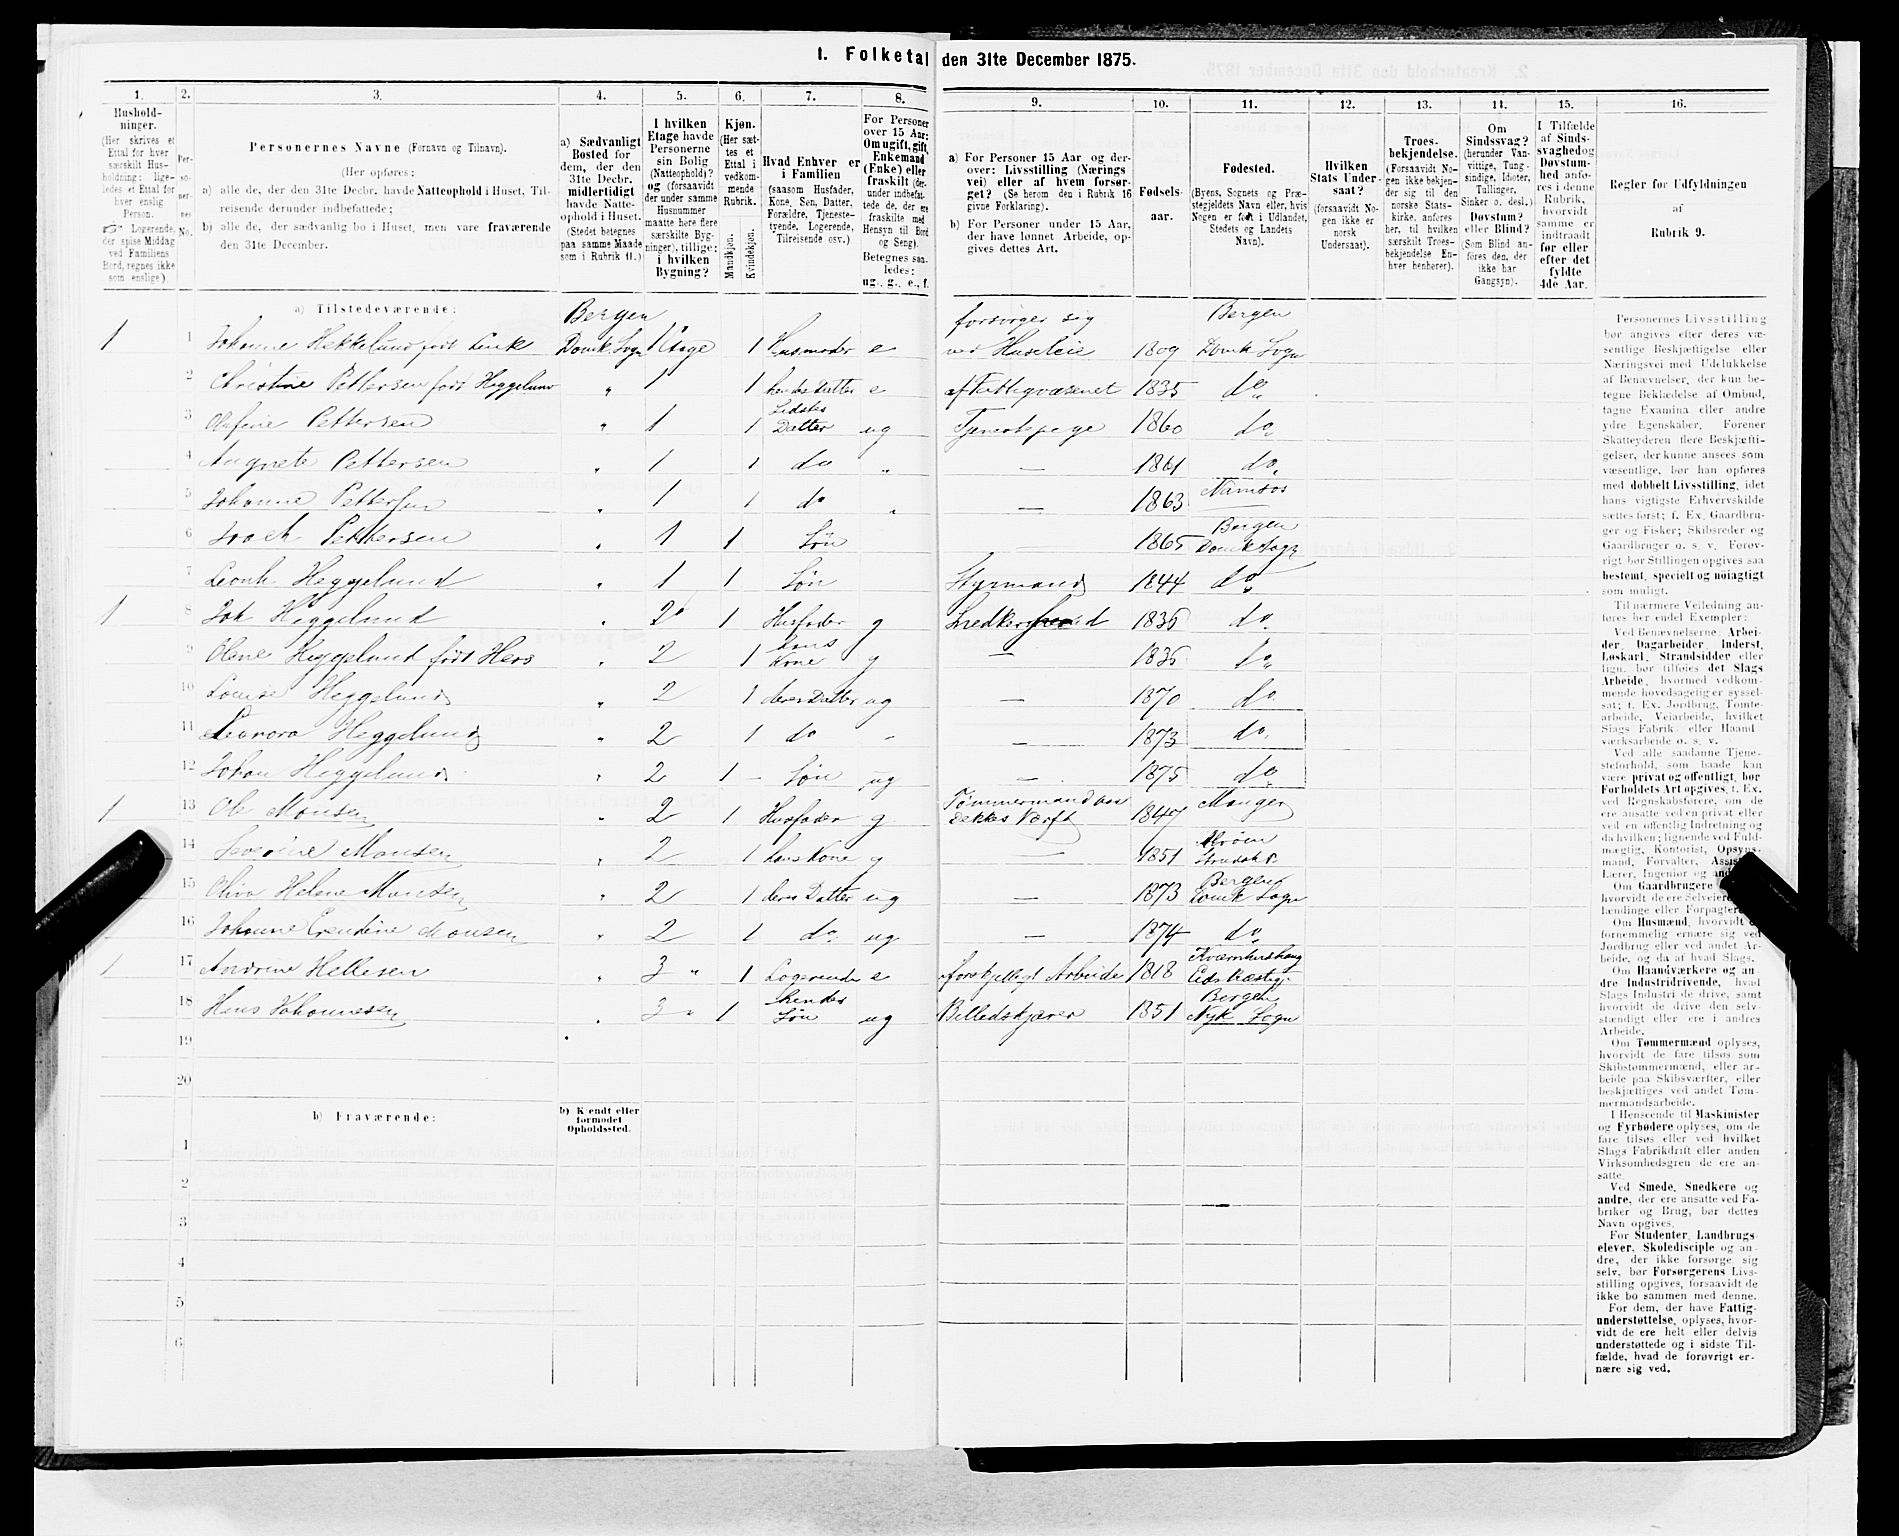 1. Folketal den 31te December 1875.
1. 2. 3. 4. 5. 6. 7. 8. 9. 10. 11. 12. 13. 14. 15. 16.
Hushold-
ninger.
(Her skrives et
Ettal for hver
særskilt Hus-
holdning; lige-
ledes et Ettal for
hver enslig
Person.
☞ Logerende,
der spise Middag
ved Familiens
Bord, regnes ikke
som enslige).
Per-
so-
ner-
nes
No.
Personernes Navne (Fornavn og Tilnavn).
(Her opføres:
a) alle de, der den 31te Decbr. havde Natteophold i Huset, Til-
reisende derunder indbefattede;
b) alle de, der sædvanlig bo i Huset, men vare fraværende
den 31te December.
a) Sædvanligt
Bosted for
dem, der den
31te Decbr.
midlertidigt
havde Natte-
ophold i Huset.
(Stedet betegnes
paa samme Maade
som i Rubrik 11.)
I hvilken
Etage havde
Personerne
sin Bolig
(Natteophold)?
og (forsaavidt
der under samme
Husnummer
maatte høre flere
særskilte Byg-
ninger), tillige:
i hvilken
Bygning?
Kjøn.
(Her sæt-
tes et
Ettal i
vedkom-
mende
Rubrik.
Mandkjøn.
Kvindekjøn.
Hvad Enhver er
i Familien
(saasom Husfader,
Kone, Søn, Datter,
Forældre, Tjeneste-
tyende, Logerende,
Tilreisende osv.)
For Personer
over 15 Aar:
Om ugift, gift,
Enkemand
(Enke) eller
fraskilt (der-
under indbefat-
tede de, der ere
fraskilte med
Hensyn til Bord
og Seng).
Betegnes saa-
ledes:
ug., g., e., f.
a) For Personer 15 Aar og der-
over: Livsstilling (Nærings
vei) eller af hvem forsør-
get? (Se herom den i Rubrik 16
givne Forklaring).
b) For Personer under 15 Aar,
der have lønnet Arbeide, op-
gives dettes Art.
Fødsels-
aar.
Fødested.
(Byens, Sognets og Præ-
stegjeldets Navn eller, hvis
Nogen er født i Udlandet,
Stedets og Landets
Navn).
Hvilken
Stats Under-
saat?
(forsaavidt No-
gen ikke er
norsk
Undersaat).
Troes-
bekjendelse.
(Forsaavidt No-
gen ikke bekjen-
der sig til den
norske Stats-
kirke, anføres
her, til hvilken
særskilt Troes-
bekjendelse En-
hver henhører).
Om
Sindssvag?
(herunder Van-
vittige, Tung-
sindige, Idioter,
Tullinger,
Sinker o. desl.)
Døvstum?
eller Blind?
(Som Blind an-
føres den, der
ikke har
Gangsyn).
I Tilfælde
af Sinds-
svaghed og
Døvstum-
hed anfø-
res i denne
Rubrik,
hvorvidt
samme er
indtraadt
før eller
efter det
fyldte
4de Aar.
Regler for Udfyldningen
af
Rubrik 9.
a) Tilstedeværende:
Bergen forsørger sig Bergen
1 1 Johanne Hekkelund født Domk Sogn 1 Etage 1 Husmoder e ved Huseleie 1809 Domk Sogn
2 Christine Pettersen født Heggelund " 1 1 hendes Datter e af Fattigvæsenet 1835 do
3 Olufine Pettersen " 1 1 Sidstes Datter ug Tjenestepige 1860 do
4 Angnete Pettersen " 1 1 do " — 1861 do
5 Johanne Pettersen " 1 1 do " — 1863 Namsos
6 Pettersen " 1 1 Søn — 1865 Bergen Domk Sogn
7 Heggelund " 1 1 Søn Styrmand 1844 do
1 8 Joh Heggelund " 2 1 Husfader g Snedkersvend 1836 do
9 Olene Heggelund født " 2 1 hans Kone g — 1836 do
10 Louise Heggelund " 2 1 deres Datter ug — 1870 do
11 Leonora Heggelund " 2 1 do " — 1873 do
12 Johan Heggelund " 2 1 — Søn ug — 1875 do
1 13 Ole Monsen " 2 1 Husfader g Tømmermand paa Dekkes Værft 1847 Manger
14 Severine Monsen " 2 1 hans Kone g — 1851
15 Oliva Helene Monsen " 2 1 deres Datter ug — 1873 Bergen Domk Sogn
16 Johanne Monsen " 2 1 do ug — 1874 do
1 17 Andrine Hellesen " 3 " 1 Logerende e forskjelligt Arbeide 1818
18 Hans Johannesen " 3 " 1 hendes Søn ug Billedskjærer 1851 Bergen Nyk Sogn
19
20
b) Fraværende:
b) Kjendt eller
formodet
Opholdssted.
1
2
3
4
5
6
Personernes Livsstilling
bør angives efter deres væ-
sentlige Beskjæftigelse eller
Næringsvei med Udelukkelse
af Benævnelser, der kun be-
tegne Beklædelse af Ombud,
tagne Examina eller andre
ydre Egenskaber. Forener
Skatteyderen flere Beskjæfti-
gelser, der kunne ansees som
væsentlige, bør han opføres
med dobbelt Livsstilling, idet
hans vigtigste Erhvervskilde
sættes først; f. Ex. Gaardbru-
ger og Fisker; Skibsreder og
Gaardbruger o. s. v. Forøv-
rigt bør Stillingen opgives saa
bestemt, specielt og nøiagtigt
som muligt.
Til nærmere Veiledning an-
føres her endel Exempler:
Ved Benævnelserne: Arbei-
der, Dagarbeider, Inderst,
Løskarl, Strandsidder eller
lign. bør tilføies det Slags
Arbeide, hvormed vedkom-
mende hovedsagelig er syssel-
sat; f. Ex. Jordbrug, Tomte-
arbeide, Veiarbeide, hvilket
Slags Fabrik- eller Haand-
værksarbeide o. s. v.
Ved alle saadanne Tjene-
steforhold, som baade kan
være privat og offentligt, bør
Forholdets Art opgives, t. Ex.
ved Regnskabsførere, om de
ere ansatte ved en privat eller
ved en offentlig Indretning og
da hvilken; lignende ved Fuld-
mægtig, Kontorist, Opsyns-
mand, Forvalter,
Lærer, Ingeniør og
Om Gaardbrugere
hvorvidt de ere Selveiere,
lændinge eller Forpagtere.
Om Husmænd, hvorvidt
fornemmelig ernære sig ved
Jordbrug eller ved andet Ar-
beide, og da af hvad Slags.
Om Haandværkere og an-
dre Industridrivende, hvad
Slags Industri de drive, samt
hvorvidt de drive den selv-
stændigt eller ere i andres
Arbeide.
Om Tømmermænd oplyses,
hvorvidt de fare tilsøs som
Skibstømmermænd, eller ar-
beide paa Skibsværfter, eller
beskjæftiges ved andet Tøm-
mermandsarbeide.
I Henseende til Maskinister
og Fyrbødere oplyses, om de
fare tilsøs eller ved hvilket
Slags Fabrikdrift eller anden
Virksomhedsgren de ere an-
satte.
Ved Smede, Snedkere og
andre, der ere ansatte ved Fa-
briker og Brug, bør dettes
Navn opgives.
For Studenter, Landbrugs-
elever, Skoledisciple og an-
dre, der ikke forsørge sig
selv, bør Forsørgerens Livs-
stilling opgives, forsaavidt de
ikke bo sammen med denne.
For dem, der have Fattig-
understøttelse, oplyses, hvor-
vidt de ere helt eller delvis
understøttede og i sidste Til-
fælde, hvad de forøvrigt er-
nære sig ved.